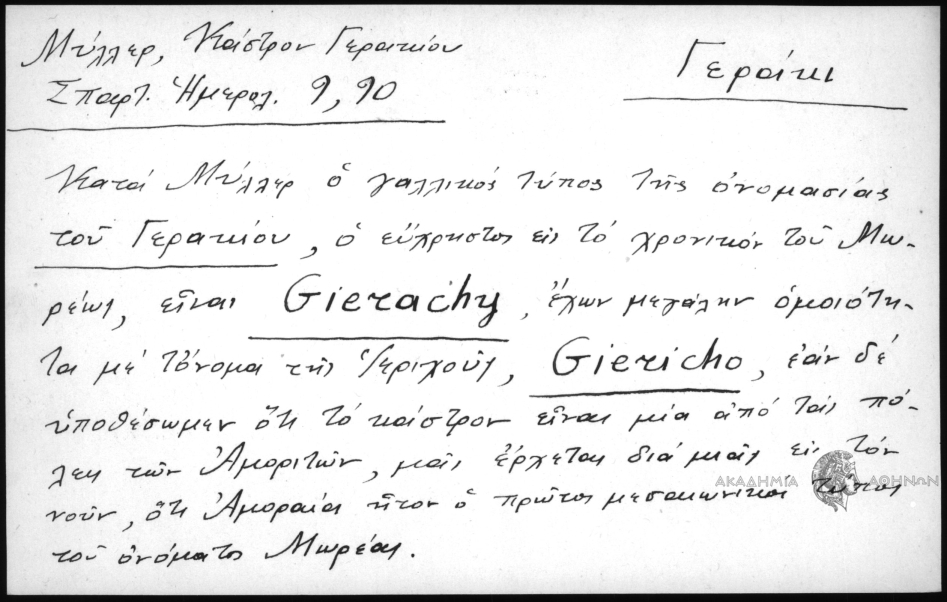 Μύλλερ, Κάστρον Γερακίου
Γεράκι
Σπαρτ. Ἡμερολ. 9, 90
Κατά Μύλλερ ὁ γαλλικός τύπος τῆς ὀνομασίας
τοῦ Γερακίου, ὁ εὔχρηστος εἰς τό χρονικόν τοῦ Μω-
ρέως, εἶναι Gierachy, ἔχων μεγάλην ὁμοιότη-
τα μέ τὄνομα τῆς Ἱεριχοῦς, Giericho, ἐάν δέ
ὑποθέσωμεν ὅτι τό κάστρον εἶναι μία ἀπό τάς πό-
λεις τῶν Ἀμοριτῶν, μᾶς ἔρχεται διά μιᾶς εἰς τόν
νοῦν, ὅτι Ἀμοραία ἦτον ὁ πρῶτος μεσαιωνικός τύπος
τοῦ ὀνόματος Μωρέας.
ΑΚΑΔΗΜΙΑ ΑΘΗΝΩΝ